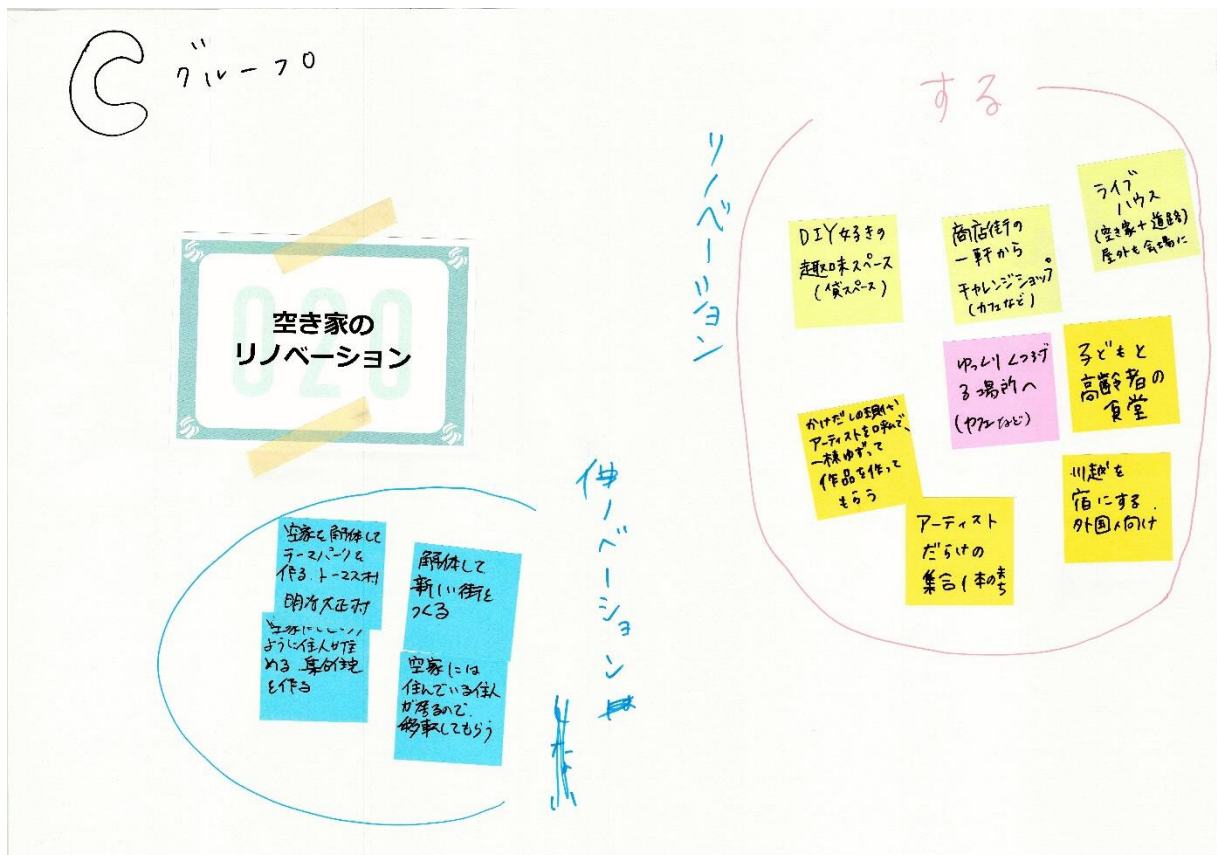 Cグループ
020
空き家の
リノベーション
リノベーション
する
DIY好きの
趣味スペース
(貸スペース)
商店街の
一軒から
チャレンジショップ
(カフェなど)
ライブ
ハウス
(空き家+道路)
屋外も会場に
ゆっくりくつろげ
る場所へ
(カフェなど)
子どもと
高齢者の
食堂
かけだしの
アーティストを呼んで、
一棟ゆずって
作品を作って
もらう
アーティスト
だらけの
集合
川越を
宿にする
外国人向け
ノベーション
空家を解体して
テーマパークを
作る.トーマス村
明治大正村
ように住人が住
める.集合住宅
を作る
解体して
新しい街を
つくる
空家には
住んでいる住人
が居るので.
移転してもらう